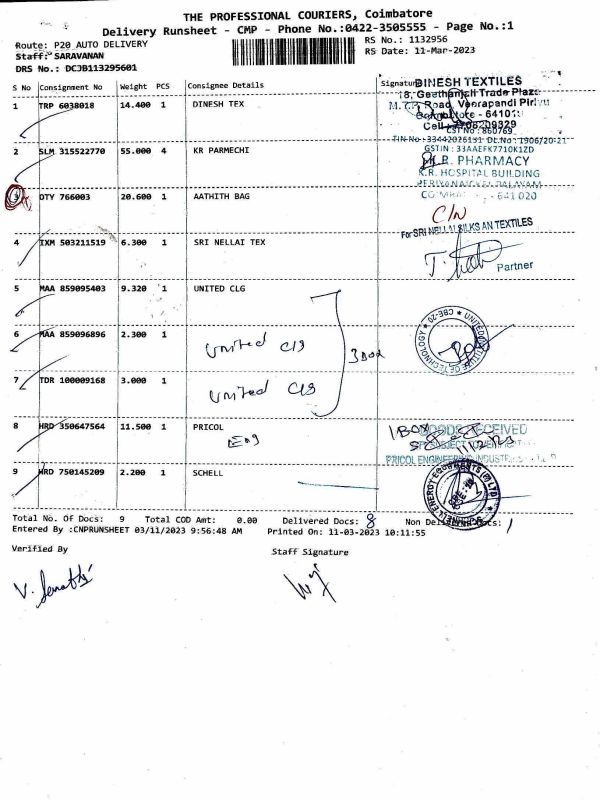 THE PROFESSIONAL COURIERS, Coimbatore
Delivery Runsheet - CMP - Phone No.:0422-3505555 - Page No.:1
Route: P20 AUTO DELIVERY
RS No.: 1132956
Staff: SARAVANAN
RS Date: 11-Mar-2023
DRS No.: DCJB113295601
S No Consignment No Weight PCS Consignee Details Signature
DINESH TEXTILES
1 TRP 6038018 14.400 1 DINESH TEX
18, Geethanjali Trade Plaza
M.T.P. Road, Veerapandi Pirivu
Coimbatore - 64101
Cell
CST No : 860769
TIN No : 33442026131 DL.No : 1906/20-21
GSTIN : 33AAEFK7710K1ZD
2 SLM 315522770 55.000 4 KR PARMECHI
K.R. PHARMACY
K.R. HOSPITAL BUILDING
PERIYANAICKEN PALAYAM
641 020
3 DTY 766003 20.600 1 AATHITH BAG
C/N
For SRI NELLAI SILKS AN TEXTILES
4 IXM 503211519 6.300 1 SRI NELLAI TEX
Partner
5 MAA 859095403 9.320 1 UNITED CLG
UNITED INSTITUTE OF TECHNOLOGY ★ CBE-20 ★
6 MAA 859096896 2.300 1 United Clg
3 Box
7 TDR 100009168 3.000 1 United Clg
8 HRD 350647564 11.500 1 PRICOL
Eng
1 Box
GOODS RECEIVED
SUBJECT
PRICOL ENGINEERING INDUSTRIES
9 HRD 750145209 2.200 1 SCHELL
Total No. Of Docs: 9 Total COD Amt: 0.00 Delivered Docs: 8 Non Delivered Docs: 1
Entered By :CNPRUNSHEET 03/11/2023 9:56:48 AM Printed On: 11-03-2023 10:11:55
Verified By Staff Signature